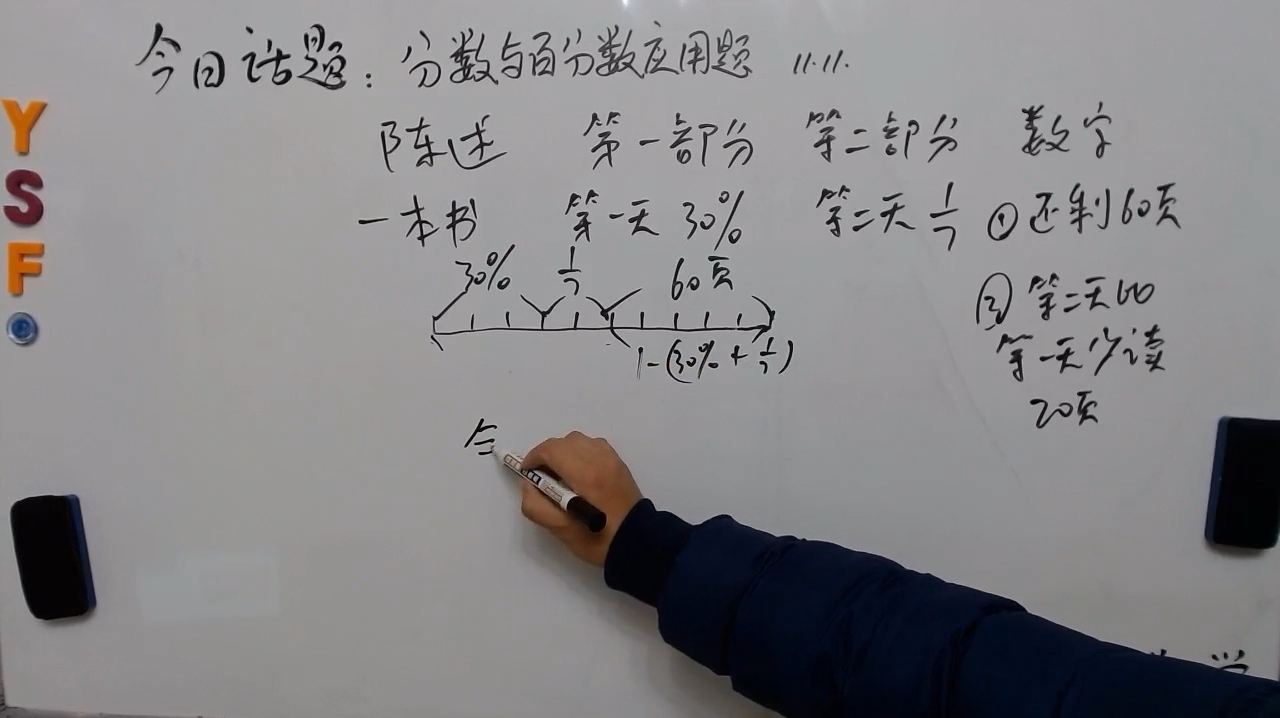 今日话题：分数与百分数应用题 11.11.
陈述 第一部分 第二部分 数字
一本书 第一天 30% 第二天 1/7 ①还剩60页
30% 1/7 60页
②第二天比
第一天少读
20页
1-(30% + 1/7)
Y
S
F